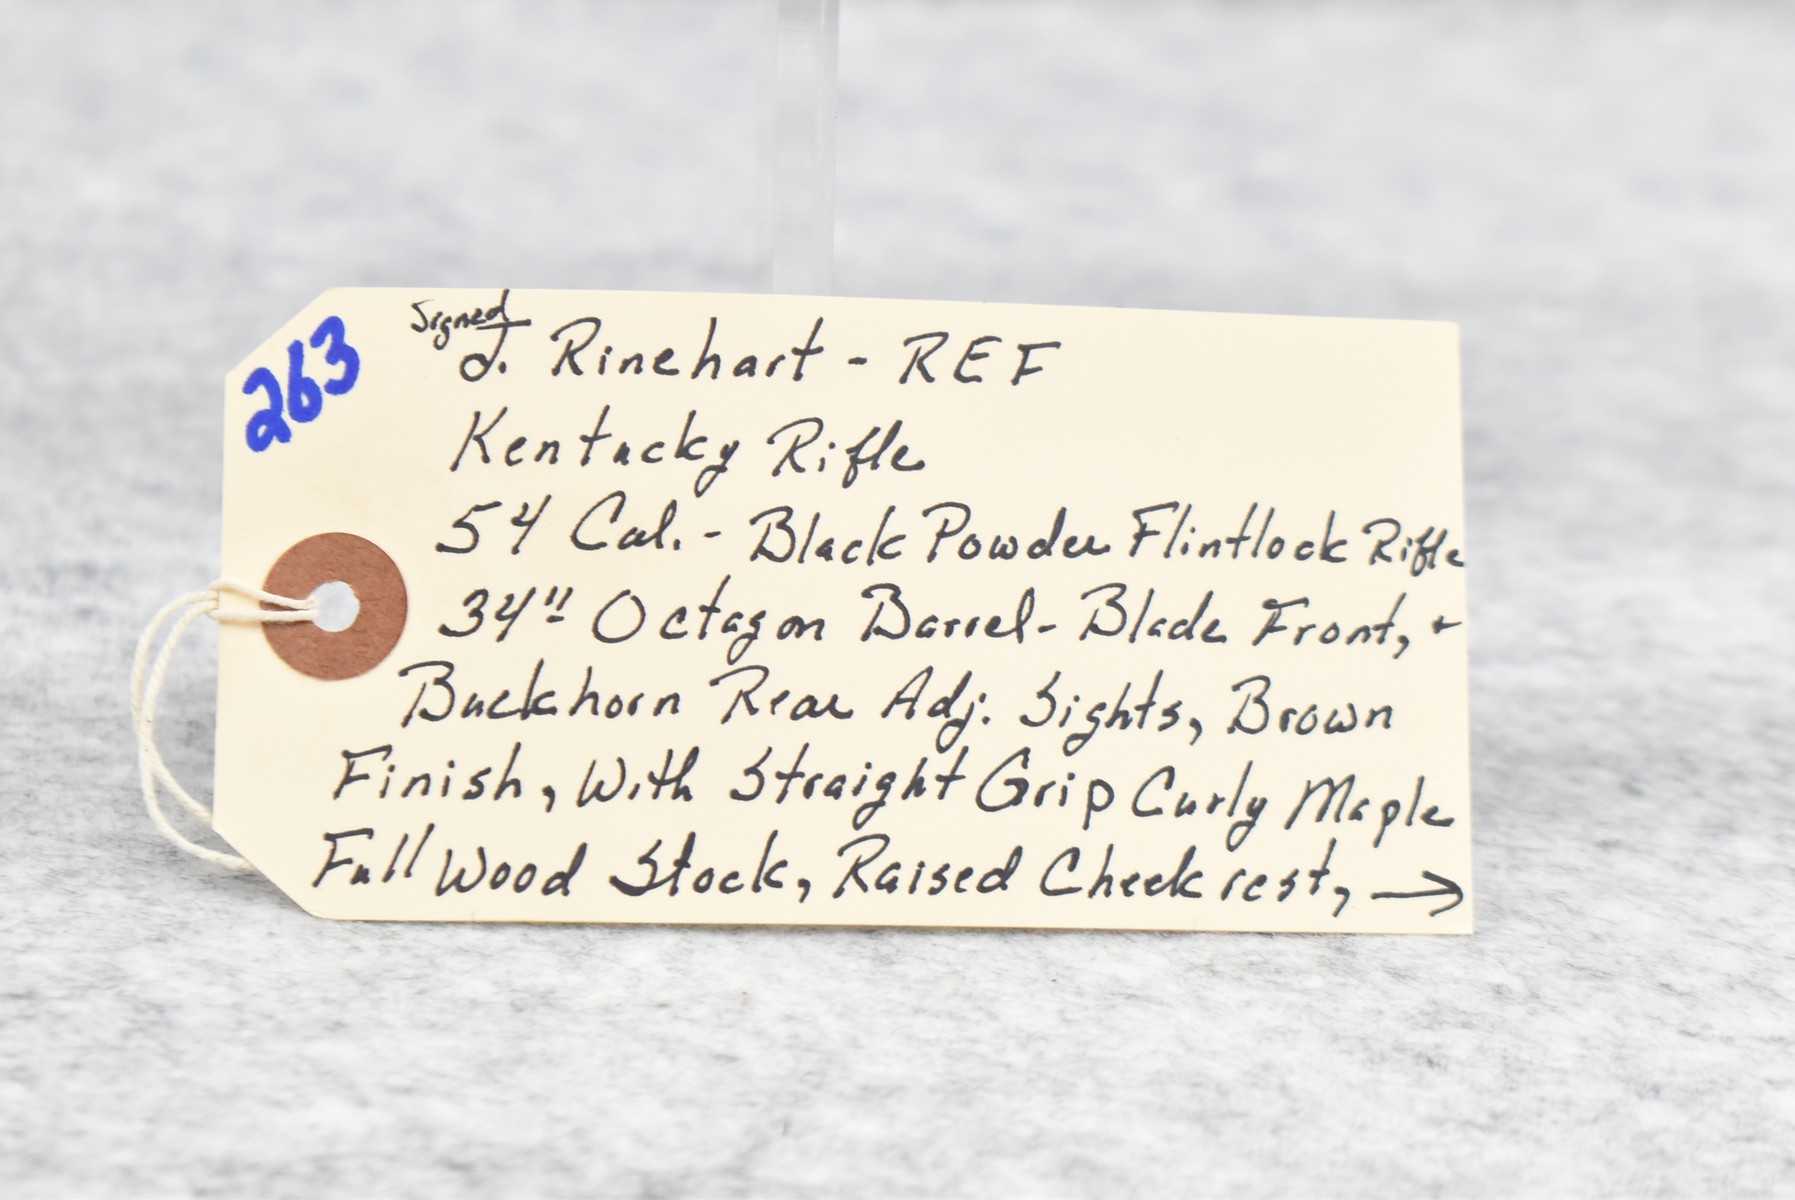 263
Signed
J. Rinehart - REF
Kentucky Rifle
54 Cal. - Black Powder Flintlock Rifle
34" Octagon Barrel - Blade Front, +
Buckhorn Rear Adj. Sights, Brown
Finish, With Straight Grip Curly Maple
Full Wood Stock, Raised Cheek rest, →